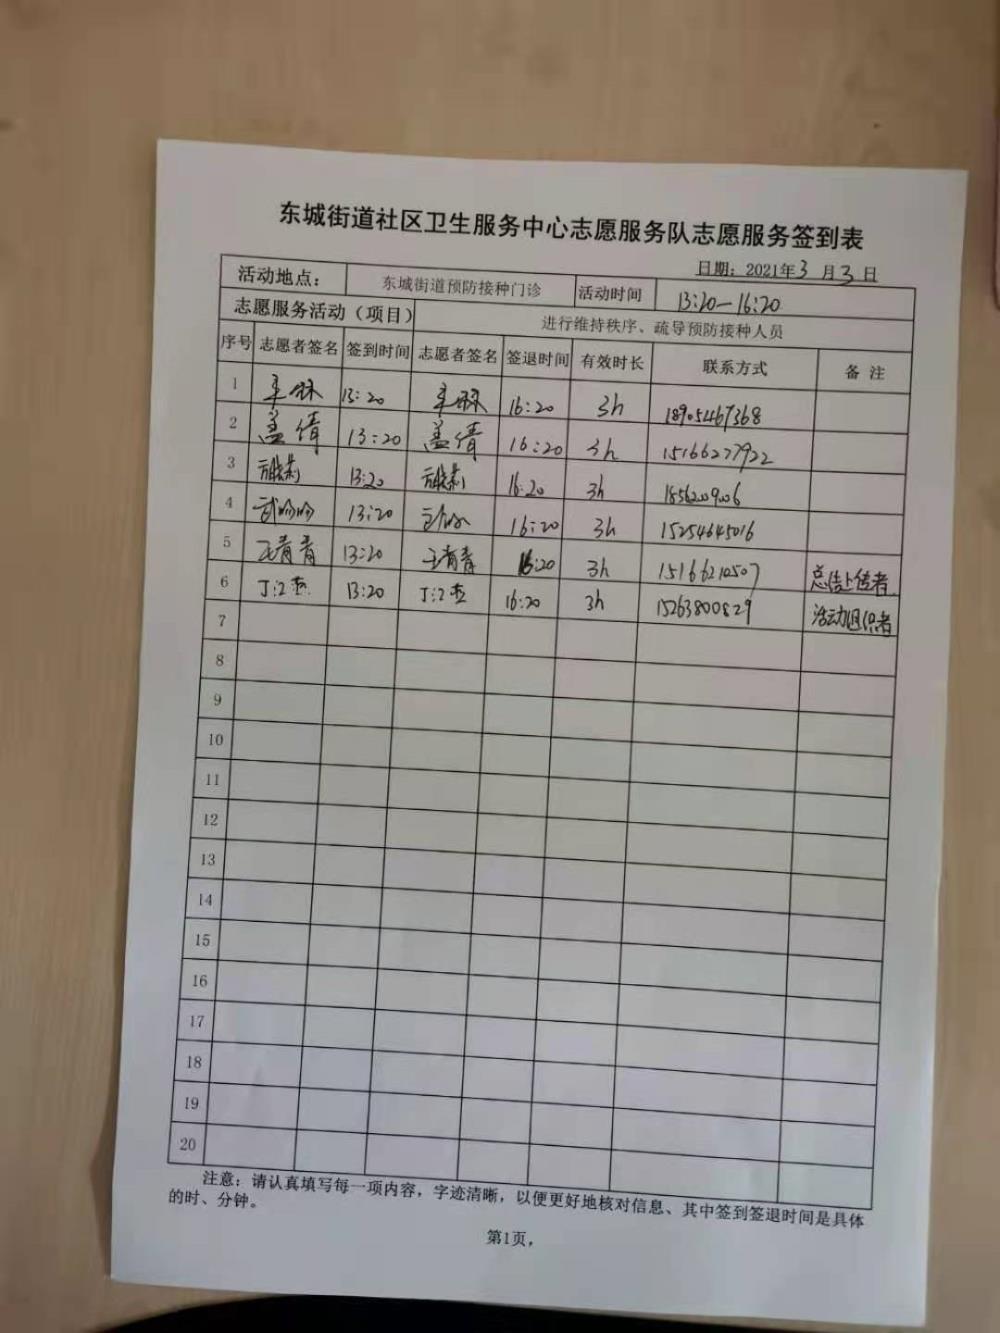 东城街道社区卫生服务中心志愿服务队志愿服务签到表
日期：2021年3月3日
活动地点： 东城街道预防接种门诊 活动时间 13:20—16:20
志愿服务活动（项目） 进行维持秩序、疏导预防接种人员
序号 志愿者签名 签到时间 志愿者签名 签退时间 有效时长 联系方式 备 注
1 13:20 16:20 3h 18905467368
2 盖倩 13:20 盖倩 16:20 3h 15166277922
3 13:20 16:20 3h
4 武吟吟 13:20 16:20 3h 15254645016
5 王青青 13:20 王青青 16:20 3h 15166210507 总结上传者
6 丁江燕 13:20 丁江燕 16:20 3h 15263800829 活动组织者
7
8
9
10
11
12
13
14
15
16
17
18
19
20
注意：请认真填写每一项内容，字迹清晰，以便更好地核对信息、其中签到签退时间是具体
的时、分钟。
第1页，